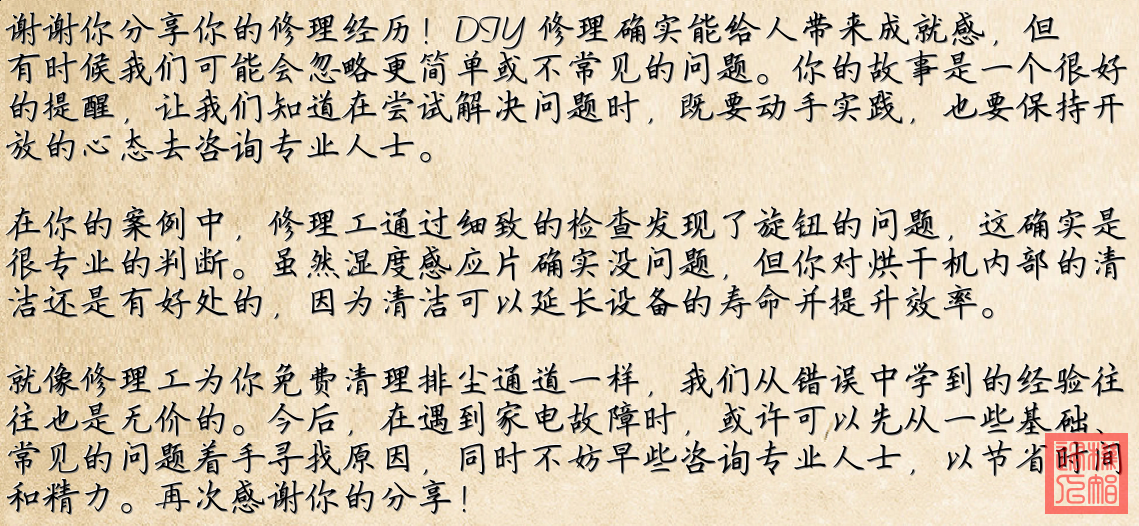 谢谢你分享你的修理经历！DIY 修理确实能给人带来成就感，但
有时候我们可能会忽略更简单或不常见的问题。你的故事是一个很好
的提醒，让我们知道在尝试解决问题时，既要动手实践，也要保持开
放的心态去咨询专业人士。
在你的案例中，修理工通过细致的检查发现了旋钮的问题，这确实是
很专业的判断。虽然湿度感应片确实没问题，但你对烘干机内部的清
洁还是有好处的，因为清洁可以延长设备的寿命并提升效率。
就像修理工为你免费清理排尘通道一样，我们从错误中学到的经验往
往也是无价的。今后，在遇到家电故障时，或许可以先从一些基础、
常见的问题着手寻找原因，同时不妨早些咨询专业人士，以节省时间
和精力。再次感谢你的分享！